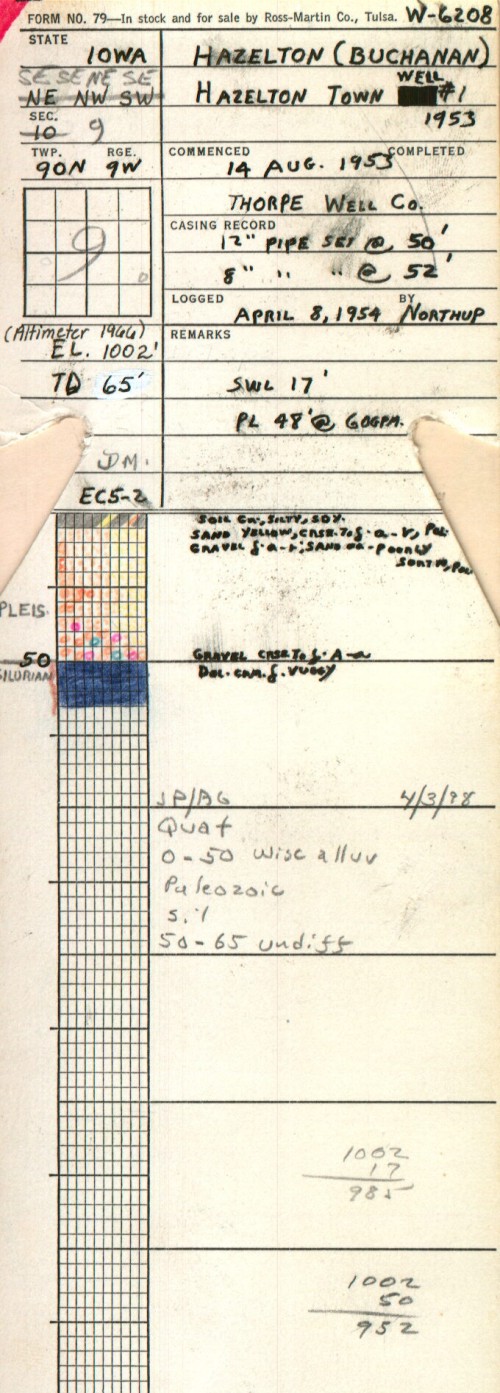 FORM NO. 79—In stock and for sale by Ross-Martin Co., Tulsa. W-6208
STATE
IOWA
HAZELTON (BUCHANAN)
SE SE NE SE
NE NW SW
HAZELTON TOWN WELL #1
SEC.
10 9
1953
TWP. RGE.
90N 9W
COMMENCED COMPLETED
14 AUG. 1953
THORPE WELL CO.
9
CASING RECORD
12" PIPE SET @ 50'
8" " " @ 52'
LOGGED BY
APRIL 8, 1954 NORTHUP
(Altimeter 1966)
EL. 1002'
REMARKS
TD 65'
SWL 17'
PL 48' @ 60GPM.
DM.
EC5-2
SAND YELLOW, CRSE. TO f. a-r, Pol.
GRAVEL f. a-r; SAND aa-POORLY
SORTED, Pol
PLEIS.
50
GRAVEL CRSE TO f. A-a
SILURIAN
DOL. CRM. f. VUGGY
JP/AG 4/3/98
Quat
0-50 Wisc alluv
Paleozoic
Sil
50-65 undiff
1002
17
985
1002
50
952